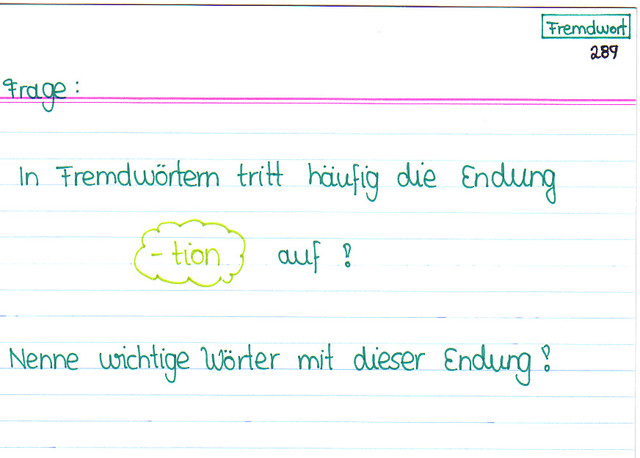 Fremdwort
289
Frage:
In Fremdwörtern tritt häufig die Endung
-tion auf!
Nenne wichtige Wörter mit dieser Endung!